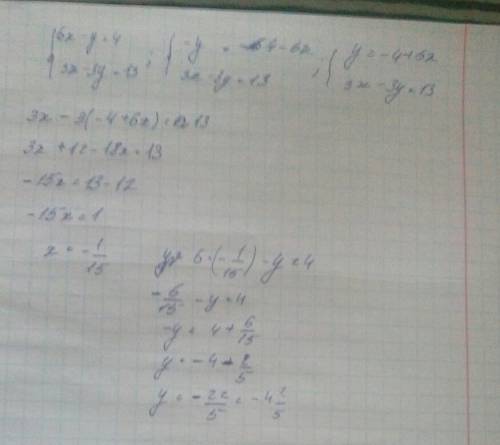 {6x-y=4 ; {-y = 4-6x ; {y=-4+6x
3x-3y=13 3x-3y=13 3x-3y=13
3x-3(-4+6x)=13
3x+12-18x=13
-15x=13-12
-15x=1
x=-1/15
6·(-1/15)-y=4
-6/15-y=4
-y=4+6/15
y=-4-2/5
y=-22/5=-4 2/5